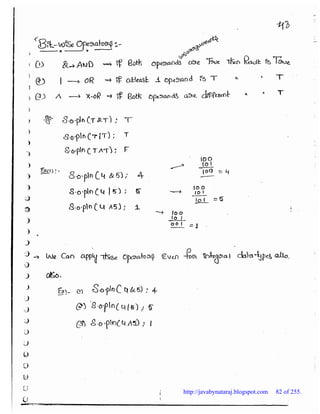 113
Bit-wise Operators :-
(arguments)
(1) & → AND → If Both operands are True Then Result is True
(2) | → OR → If atleast 1 operand is T " " T
(3) ^ → X-OR → If Both operands are different " " T
S.o.pln (T & T) ; T
S.o.pln (T | T) ; T
S.o.pln (T ^ T) ; F
Ex(1) :- S.o.pln (4 & 5) ; 4 → 100
101
100 = 4
S.o.pln (4 | 5) ; 5 → 100
101
101 = 5
S.o.pln (4 ^ 5) ; 1 → 100
101
001 = 1
→ We Can apply these operators Even for Integral data-types also.
also.
Ex :- (1) S.o.pln (4 & 5) ; 4
(2) S.o.pln (4 | 5) ; 5
(3) S.o.pln (4 ^ 5) ; 1
http://javabynataraj.blogspot.com 82 of 255.